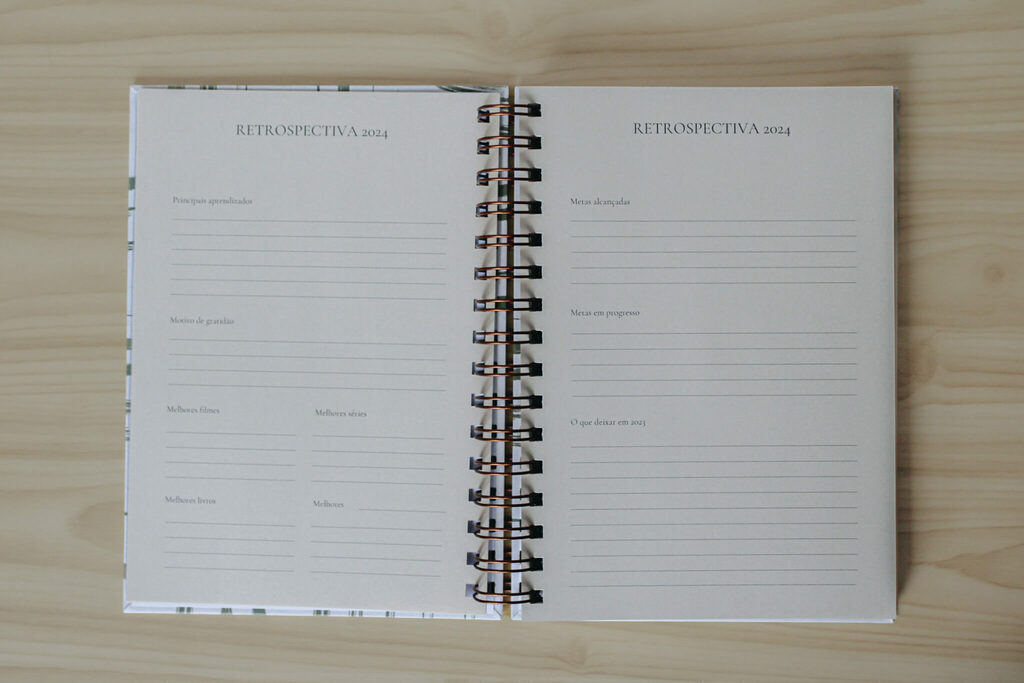 RETROSPECTIVA 2024
Principais aprendizados
Motivo de gratidão
Melhores filmes
Melhores séries
Melhores livros
Melhores
RETROSPECTIVA 2024
Metas alcançadas
Metas em progresso
O que deixar em 2023